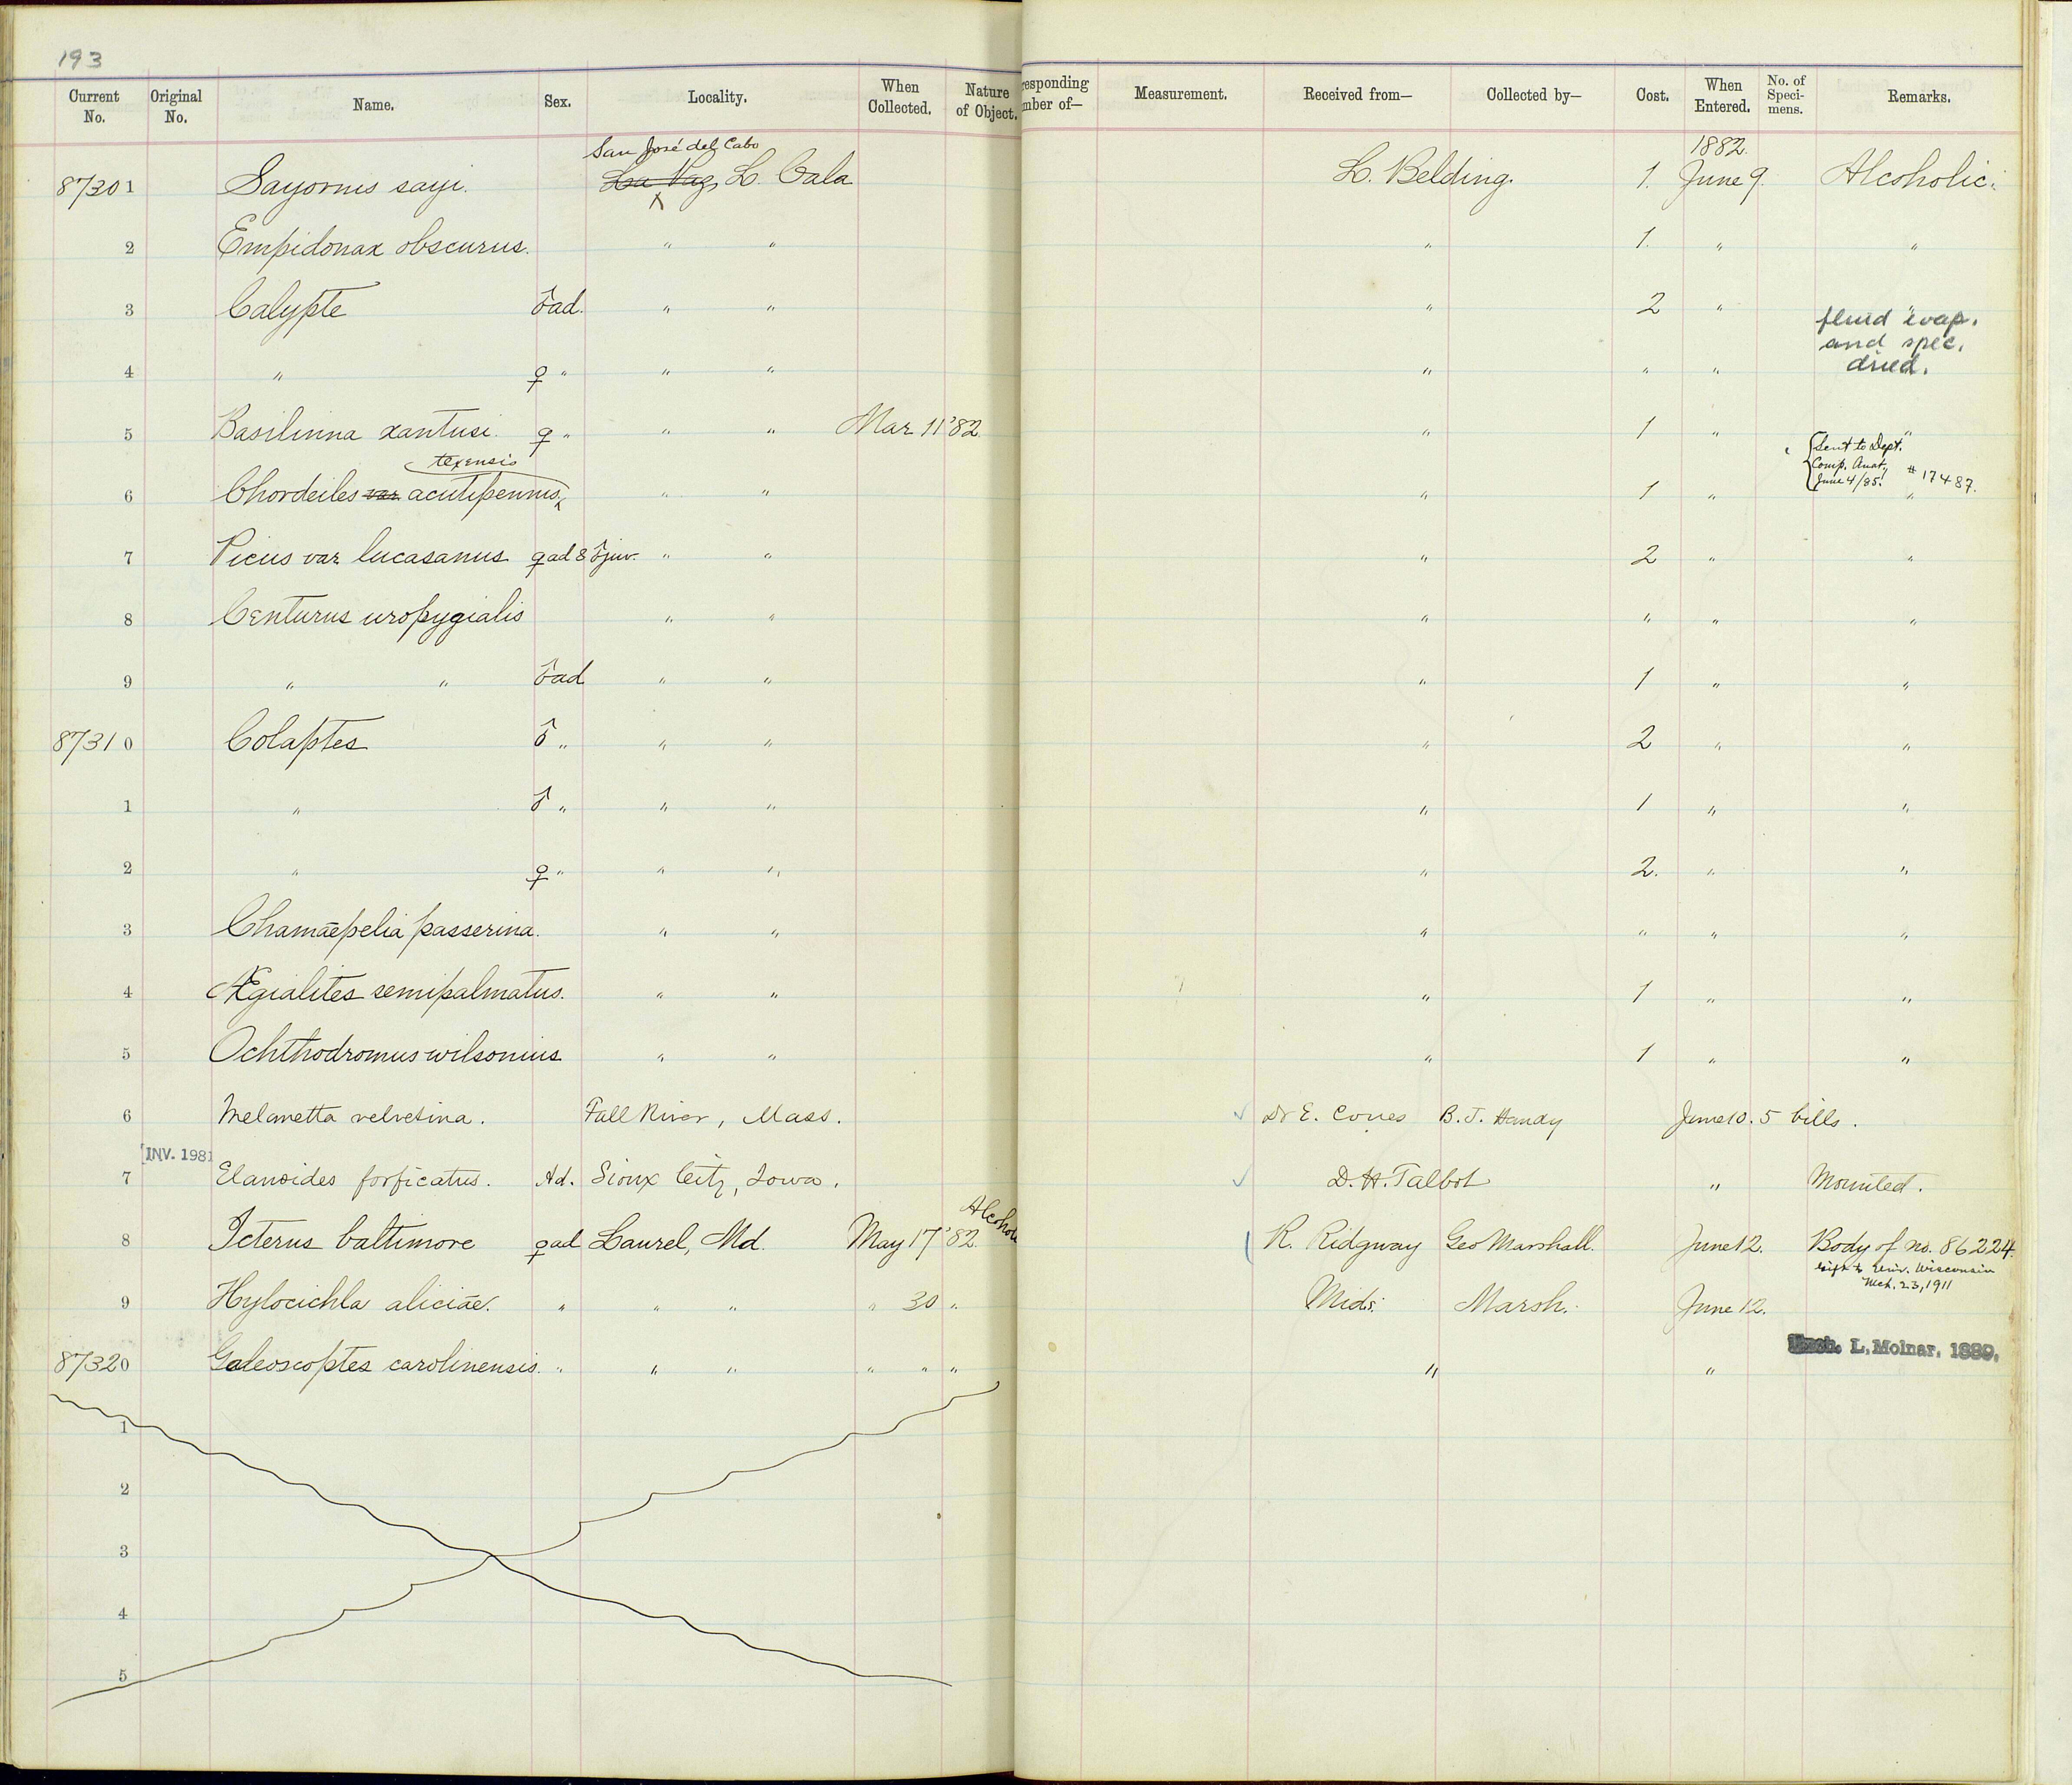 193
Current No. Original No. Name. Sex. Locality. When Collected. Nature of Object. responding mber of— Measurement. Received from— Collected by— Cost. When Entered. No. of Speci- mens. Remarks.
San José del Cabo 1882.
87301 Sayornis sayi. La Paz, L. Cala L. Belding. 1. June 9. Alcoholic.
2 Empidonax obscurus. " " " 1. " "
3 Calypte ♂ ad. " " " 2 " "
fluid evap.
and spec.
dried.
4 " ♀ " " " " " "
5 Basilinna xantusi. ♀ " " " Mar 11 '82. " 1 " "
texensis
{Sent to Dept.
Comp. Anat,
June 4/85. # 17487.
6 Chordeiles var acutipennis " " " 1 " "
7 Picus var lucasanus ♀ ad & ♂ juv. " " " 2 " "
8 Centurus uropygialis " " " " " "
9 " " ♂ ad " " " 1 " "
87310 Colaptes ♂ " " " " 2 " "
1 " ♂ " " " " 1 " "
2 " ♀ " " " " 2. " "
3 Chamaepelia passerina. " " " " " "
4 Ægialites semipalmatus. " " " 1 " "
5 Ochthodromus wilsonius " " " 1 " "
6 Melanetta velvetina. Fall River, Mass. Dr E. Coues B. J. Handy June 10. 5 bills.
[INV. 1981
7 Elanoides forficatus. Ad. Sioux City, Iowa. D. H. Talbot " Mounted.
8 Icterus baltimore ♀ ad Laurel, Md. May 17 '82. Alcohol R. Ridgway Geo Marshall. June 12. Body of no. 86224.
Gift to Univ. Wisconsin
Mch. 23, 1911
9 Hylocichla aliciae. " " " " 30 " Marsh. June 12.
L. Molnar. 1889.
87320 Galeoscoptes carolinensis. " " " " " " " "
1
2
3
4
5